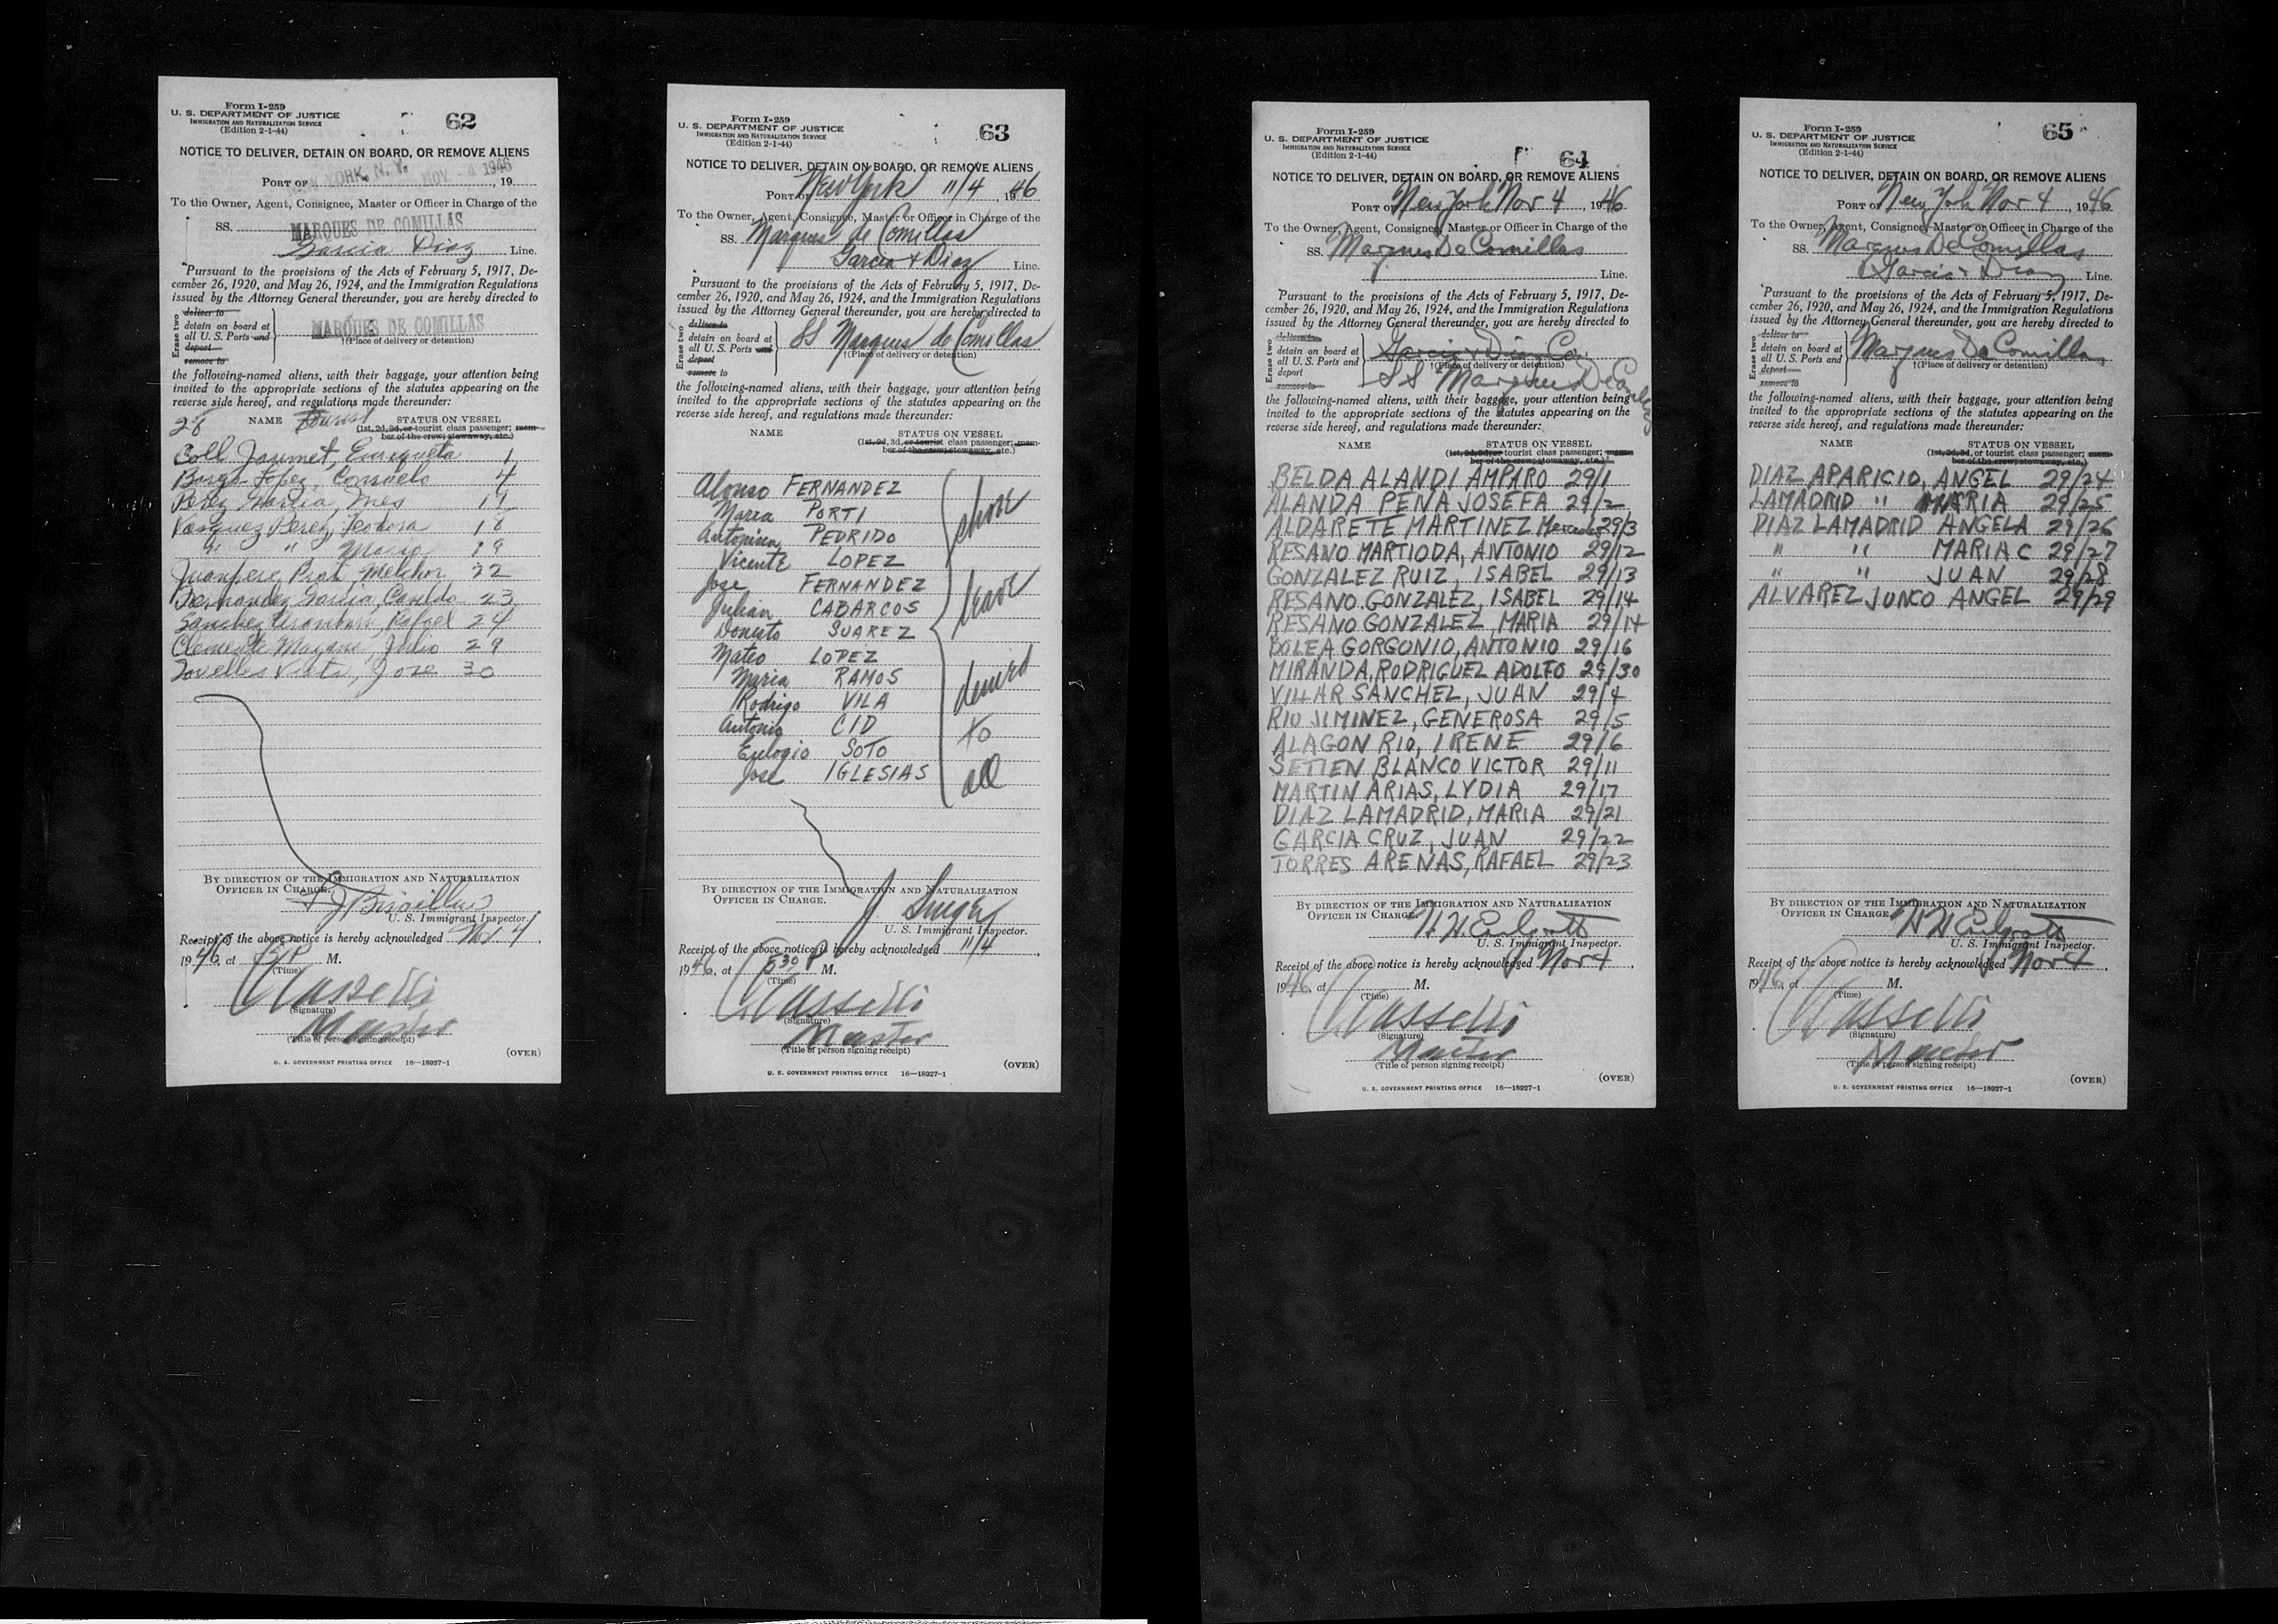 Form I-259
U. S. DEPARTMENT OF JUSTICE
IMMIGRATION AND NATURALIZATION SERVICE
(Edition 2-1-44)
62
NOTICE TO DELIVER, DETAIN ON BOARD, OR REMOVE ALIENS
PORT OF NEW YORK, N. Y. NOV - 4 1946, 19
To the Owner, Agent, Consignee, Master or Officer in Charge of the
SS. MARQUES DE COMILLAS
Garcia Diaz Line.
Pursuant to the provisions of the Acts of February 5, 1917, De-
cember 26, 1920, and May 26, 1924, and the Immigration Regulations
issued by the Attorney General thereunder, you are hereby directed to
Erase two
deliver to
detain on board at
all U. S. Ports and
deport
remove to
MARQUES DE COMILLAS
†(Place of delivery or detention)
the following-named aliens, with their baggage, your attention being
invited to the appropriate sections of the statutes appearing on the
reverse side hereof, and regulations made thereunder:
28 NAME Tourist STATUS ON VESSEL
(1st, 2d, 3d, or tourist class passenger; mem-
ber of the crew; stowaway, etc.)
Coll Jaumet, Enriqueta 1
Borge Lopez, Consuelo 4
Perez Garcia, Ines
Vasquez Perez, Teodora 18
" " Maria 19
Juanpere Prat, Melchor 22
Fernandez Garcia, 23
Sanchez Aramburu, Rafael 24
Clemente Mayans, Julio 29
Vista, Jose 30
BY DIRECTION OF THE IMMIGRATION AND NATURALIZATION
OFFICER IN CHARGE.
U. S. Immigrant Inspector.
Receipt of the above notice is hereby acknowledged Nov. 4,
1946, at 5 P M.
(Time)
(Signature)
Master
(Title of person signing receipt)
U. S. GOVERNMENT PRINTING OFFICE 16—18927-1
(OVER)
Form I-259
U. S. DEPARTMENT OF JUSTICE
IMMIGRATION AND NATURALIZATION SERVICE
(Edition 2-1-44)
63
NOTICE TO DELIVER, DETAIN ON BOARD, OR REMOVE ALIENS
PORT OF New York 11/4, 1946
To the Owner, Agent, Consignee, Master or Officer in Charge of the
SS. Marques de Comillas
Garcia & Diaz Line.
Pursuant to the provisions of the Acts of February 5, 1917, De-
cember 26, 1920, and May 26, 1924, and the Immigration Regulations
issued by the Attorney General thereunder, you are hereby directed to
Erase two
deliver to
detain on board at
all U. S. Ports and
deport
remove to
SS Marques de Comillas
†(Place of delivery or detention)
the following-named aliens, with their baggage, your attention being
invited to the appropriate sections of the statutes appearing on the
reverse side hereof, and regulations made thereunder:
NAME STATUS ON VESSEL
(1st, 2d, 3d, or tourist class passenger; mem-
ber of the crew; stowaway, etc.)
Alonso FERNANDEZ
Maria PORTI
Antonina PEDRIDO
Vicente LOPEZ
Jose FERNANDEZ
Julian CABARCOS
Donato SUAREZ
Mateo LOPEZ
Maria RAMOS
Rodrigo VILA
Antonio CID
Eulogio SOTO
Jose IGLESIAS
shore
leave
denied
to
all
BY DIRECTION OF THE IMMIGRATION AND NATURALIZATION
OFFICER IN CHARGE.
J Singer
U. S. Immigrant Inspector.
Receipt of the above notice is hereby acknowledged 11/4,
1946, at 5 30 P M.
(Time)
(Signature)
Master
(Title of person signing receipt)
U. S. GOVERNMENT PRINTING OFFICE 16—18927-1
(OVER)
Form I-259
U. S. DEPARTMENT OF JUSTICE
IMMIGRATION AND NATURALIZATION SERVICE
(Edition 2-1-44)
64
NOTICE TO DELIVER, DETAIN ON BOARD, OR REMOVE ALIENS
PORT OF New York Nov 4, 1946
To the Owner, Agent, Consignee, Master or Officer in Charge of the
SS. Marques De Comillas
Line.
Pursuant to the provisions of the Acts of February 5, 1917, De-
cember 26, 1920, and May 26, 1924, and the Immigration Regulations
issued by the Attorney General thereunder, you are hereby directed to
Erase two
deliver to
detain on board at
all U. S. Ports and
deport
remove to
Garcia & Diaz Co.
†(Place of delivery or detention)
SS Marques De Comillas
the following-named aliens, with their baggage, your attention being
invited to the appropriate sections of the statutes appearing on the
reverse side hereof, and regulations made thereunder:
NAME STATUS ON VESSEL
(1st, 2d, 3d, or tourist class passenger; mem-
ber of the crew; stowaway, etc.)
BELDA ALANDI AMPARO 29/1
ALANDA PENA JOSEFA 29/2
ALDARETE MARTINEZ Mercedes 29/3
RESANO MARTIODA, ANTONIO 29/12
GONZALEZ RUIZ, ISABEL 29/13
RESANO GONZALEZ, ISABEL 29/14
RESANO GONZALEZ, MARIA 29/14
BOLEA GORGONIO, ANTONIO 29/16
MIRANDA, RODRIGUEL ADOLFO 29/30
VILLAR SANCHEL, JUAN 29/4
RIO JIMINEZ, GENEROSA 29/5
ALAGON RIO, IRENE 29/6
SETIEN BLANCO VICTOR 29/11
MARTIN ARIAS, LYDIA 29/17
DIAZ LAMADRID, MARIA 29/21
GARCIA CRUZ, JUAN 29/22
TORRES ARENAS, RAFAEL 29/23
BY DIRECTION OF THE IMMIGRATION AND NATURALIZATION
OFFICER IN CHARGE.
U. S. Immigrant Inspector.
Receipt of the above notice is hereby acknowledged Nov 4,
1946, at M.
(Time)
(Signature)
Master
(Title of person signing receipt)
U. S. GOVERNMENT PRINTING OFFICE 16—18927-1
(OVER)
Form I-259
U. S. DEPARTMENT OF JUSTICE
IMMIGRATION AND NATURALIZATION SERVICE
(Edition 2-1-44)
65
NOTICE TO DELIVER, DETAIN ON BOARD, OR REMOVE ALIENS
PORT OF New York Nov 4, 1946
To the Owner, Agent, Consignee, Master or Officer in Charge of the
SS. Marques De Comillas
Garcia & Diaz Line.
Pursuant to the provisions of the Acts of February 5, 1917, De-
cember 26, 1920, and May 26, 1924, and the Immigration Regulations
issued by the Attorney General thereunder, you are hereby directed to
Erase two
deliver to
detain on board at
all U. S. Ports and
deport
remove to
Marques De Comillas
†(Place of delivery or detention)
the following-named aliens, with their baggage, your attention being
invited to the appropriate sections of the statutes appearing on the
reverse side hereof, and regulations made thereunder:
NAME STATUS ON VESSEL
(1st, 2d, 3d, or tourist class passenger; mem-
ber of the crew; stowaway, etc.)
DIAZ APARICIO, ANGEL 29/24
LAMADRID " MARIA 29/25
DIAZ LAMADRID ANGELA 29/26
" " MARIA C 29/27
" " JUAN 29/28
ALVAREZ JUNCO ANGEL 29/29
BY DIRECTION OF THE IMMIGRATION AND NATURALIZATION
OFFICER IN CHARGE.
U. S. Immigrant Inspector.
Receipt of the above notice is hereby acknowledged Nov 4,
1946, at M.
(Time)
(Signature)
Master
(Title of person signing receipt)
U. S. GOVERNMENT PRINTING OFFICE 16—18927-1
(OVER)